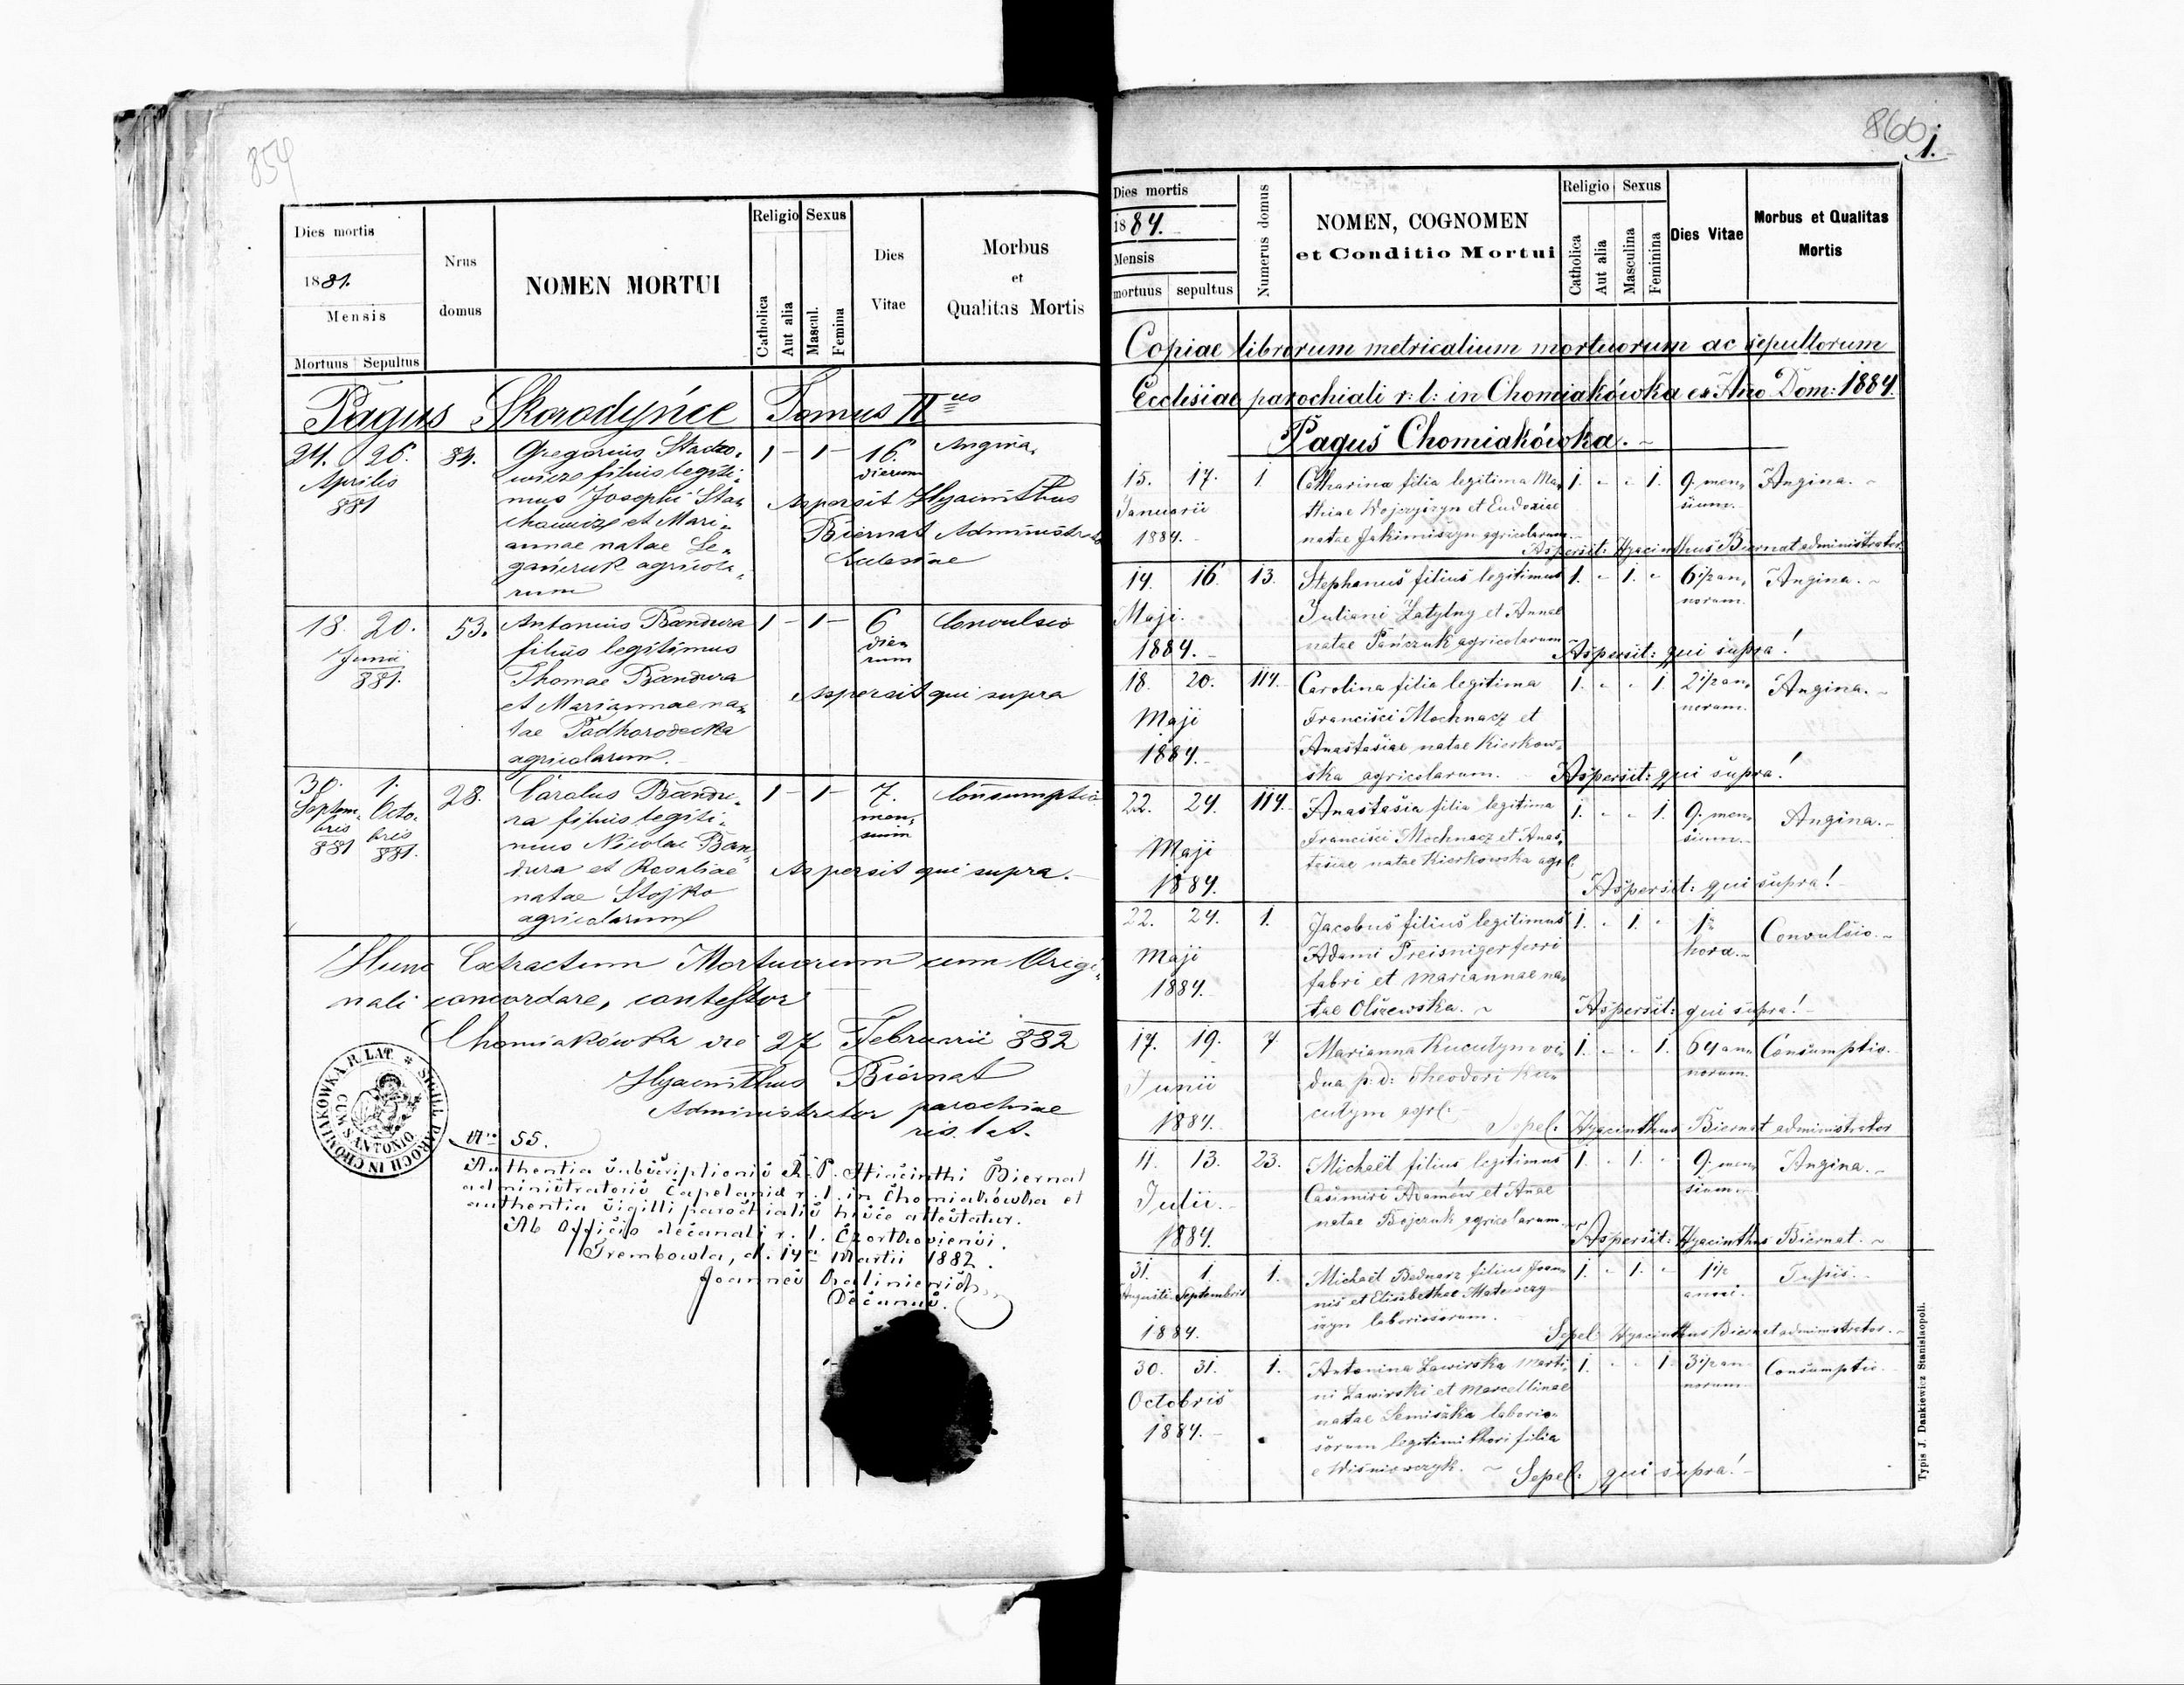 854
Dies mortis
1881.
Mensis
Mortuus Sepultus
Nrus domus
NOMEN MORTUI
Religio
Catholica
Aut alia
Sexus
Mascul.
Femina
Dies Vitae
Morbus
et
Qualitas Mortis
Pagus Skorodyńce Tomus II us
24. 26. 84. Gregorius Stacho- 1 - 1 - 16. Angina.
Aprilis wicz filius legiti- dierum
881 mus Josephi Sta-
Aspersit Hyacinthus
chowicz et Mari-
Biernat Administrator
annae natae Le-
Ecclesiae
gańczuk agricola-
rum
18. 20. 53. Antonius Bandura 1 - 1 - 6 Convulsio
Junii filius legitimus dierum
881. Thomae Bandura
Aspersit qui supra
et Mariannae na-
tae Podhorodecka
agricolarum.
30. 1. 28. Carolus Bandu- 1 - 1 - 7. Consumptio
Septembris Octobris ra filius legiti- mensium
881 881. mus Nicolai Ban-
dura et Rosaliae
Aspersit qui supra.
natae Stojko
agricolarum
Hunc Extractum Mortuorum cum Origi-
nali concordare, contestor
Chomiakówka die 27 Februarii 882
Hyacinthus Biernat
Administrator parochiae
rit. lat.
SIGILL PAROCH IN CHOMIAKÓWKA R. LAT.
CUM S ANTONIO
Nro 55.
Authentia subscriptionis A. P. Hiacinthi Biernat
administratoris Capelaniae r. l. in Chomiakówka et
authentia sigilli parochialis hisce attestatur.
Ab Officio decanali r. l. Czortkoviensi.
Trembowla, d. 14a Martii 1882.
Joannes
Decanus.
866
1.
Dies mortis
1884.
Mensis
mortuus sepultus
Numerus domus
NOMEN, COGNOMEN
et Conditio Mortui
Religio
Catholica
Aut alia
Sexus
Masculina
Feminina
Dies Vitae
Morbus et Qualitas
Mortis
Copiae librorum metricalium mortuorum ac sepultorum
Ecclesiae parochiali r: l: in Chomiakówka ex Ano Dom: 1884.
Pagus Chomiakówka.
15. 17. 1 Catharina filia legitima Ma- 1. - - 1. 9. men- Angina.
Januarii thiae Wojczyszyn et Eudoxiae sium.
1884. natae Jakimiszyn agricolarum.
Aspersit: Hyacinthus Biernat administrator
14. 16. 13. Stephanus filius legitimus 1. - 1. - 6 1/2 an- Angina.
Maji. Juliani Zatylny et Annae norum.
1884. natae Pańczuk agricolarum
Aspersit: qui supra!
18. 20. 114. Carolina filia legitima 1. - - 1. 2 1/2 an- Angina.
Maji Francisci Mochnacz et norum.
1884. Anastasiae natae Kierkow-
ska agricolarum. Aspersit: qui supra!
22. 24. 114. Anastasia filia legitima 1. - - 1. 9. men- Angina.
Maji Francisci Mochnacz et Anas- sium.
1884. tasiae natae Kierkowska agrl:
Aspersit: qui supra!
22. 24. 1. Jacobus filius legitimus 1. - 1. - 1 Convulsio.
Maji Adami Preisniger ferri hora.
1884. fabri et Mariannae na-
tae Olszewska. Aspersit: qui supra!
17. 19. 7 Marianna Kuculym vi- 1. - - 1. 64 an- Consumptio.
Junii dua p: d: Theodori Ku- norum.
1884. culym agrl:
Sepel: Hyacinthus Biernat administrator
11. 13. 23. Michaël filius legitimus 1. - 1. - 9. men- Angina.
Julii. Casimiri Adamów et Anae sium.
1884. natae Bojczuk agricolarum.
Aspersit: Hyacinthus Biernat.
31. 1 1. Michaël Bednarz filius Joan- 1. - 1. - 1 1/2 Tussis.
Augusti Septembris nis et Elisabethae anni.
1884. szyn laboriosorum.
Sepel: Hyacinthus Biernat administrator.
30. 31. 1. Antonina Lawirska Marti- 1. - - 1 3 1/2 an- Consumptio.
Octobris ni Lawirski et Marcellinae norum
1884. natae Semiszka laborio-
sorum legitimi thori filia
e Wiśniowczyk. Sepel: qui supra!
Typis J. Dankiewicz Stanislaopoli.